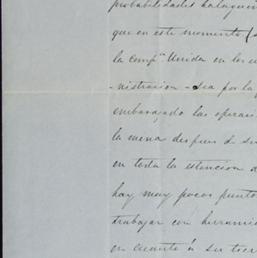 probabilidades halagueñ
que en este momento (
la Comp.ⁿ Unida en los
-nistracion - sea por la
embarazado las operaci
la mena despues de su
en toda la estencion d
hay muy pocos punto
trabajar con herrami
en cuanto á su